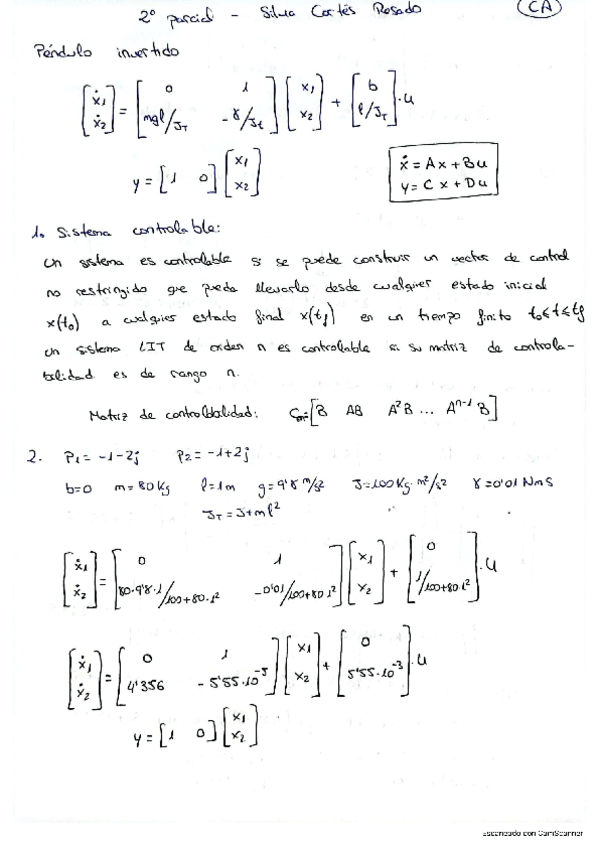 2º parcial - Silvia Cortés Rosado
CA
Péndulo invertido
[ẋ1 ẋ2] = [0 1; mgl/JT -γ/Jt] [x1 x2] + [b l/JT] · u
y = [1 0] [x1 x2]
ẋ = Ax + Bu
y = Cx + Du
1. Sistema controlable:
Un sistema es controlable si se puede construir un vector de control
no restringido que pueda llevarlo desde cualquier estado inicial
x(t0) a cualquier estado final x(tf) en un tiempo finito t0≤t≤tf
Un sistema LIT de orden n es controlable si su matriz de controla-
bilidad es de rango n.
Matriz de controlabilidad: C=[B AB A²B ... Aⁿ⁻¹B]
2. P1= -1-2j P2= -1+2j
b=0 m=80Kg l=1m g=9'8 m/s² J=100Kg·m²/s² γ=0'01 Nms
JT = J+ml²
[ẋ1 ẋ2] = [0 1; 80·9'8·1/100+80·1² -0'01/100+80·1²] [x1 x2] + [0 1/100+80·1²] · u
[ẋ1 ẋ2] = [0 1; 4'356 -5'55·10⁻⁵] [x1 x2] + [0 5'55·10⁻³] · u
y = [1 0] [x1 x2]
Escaneado con CamScanner